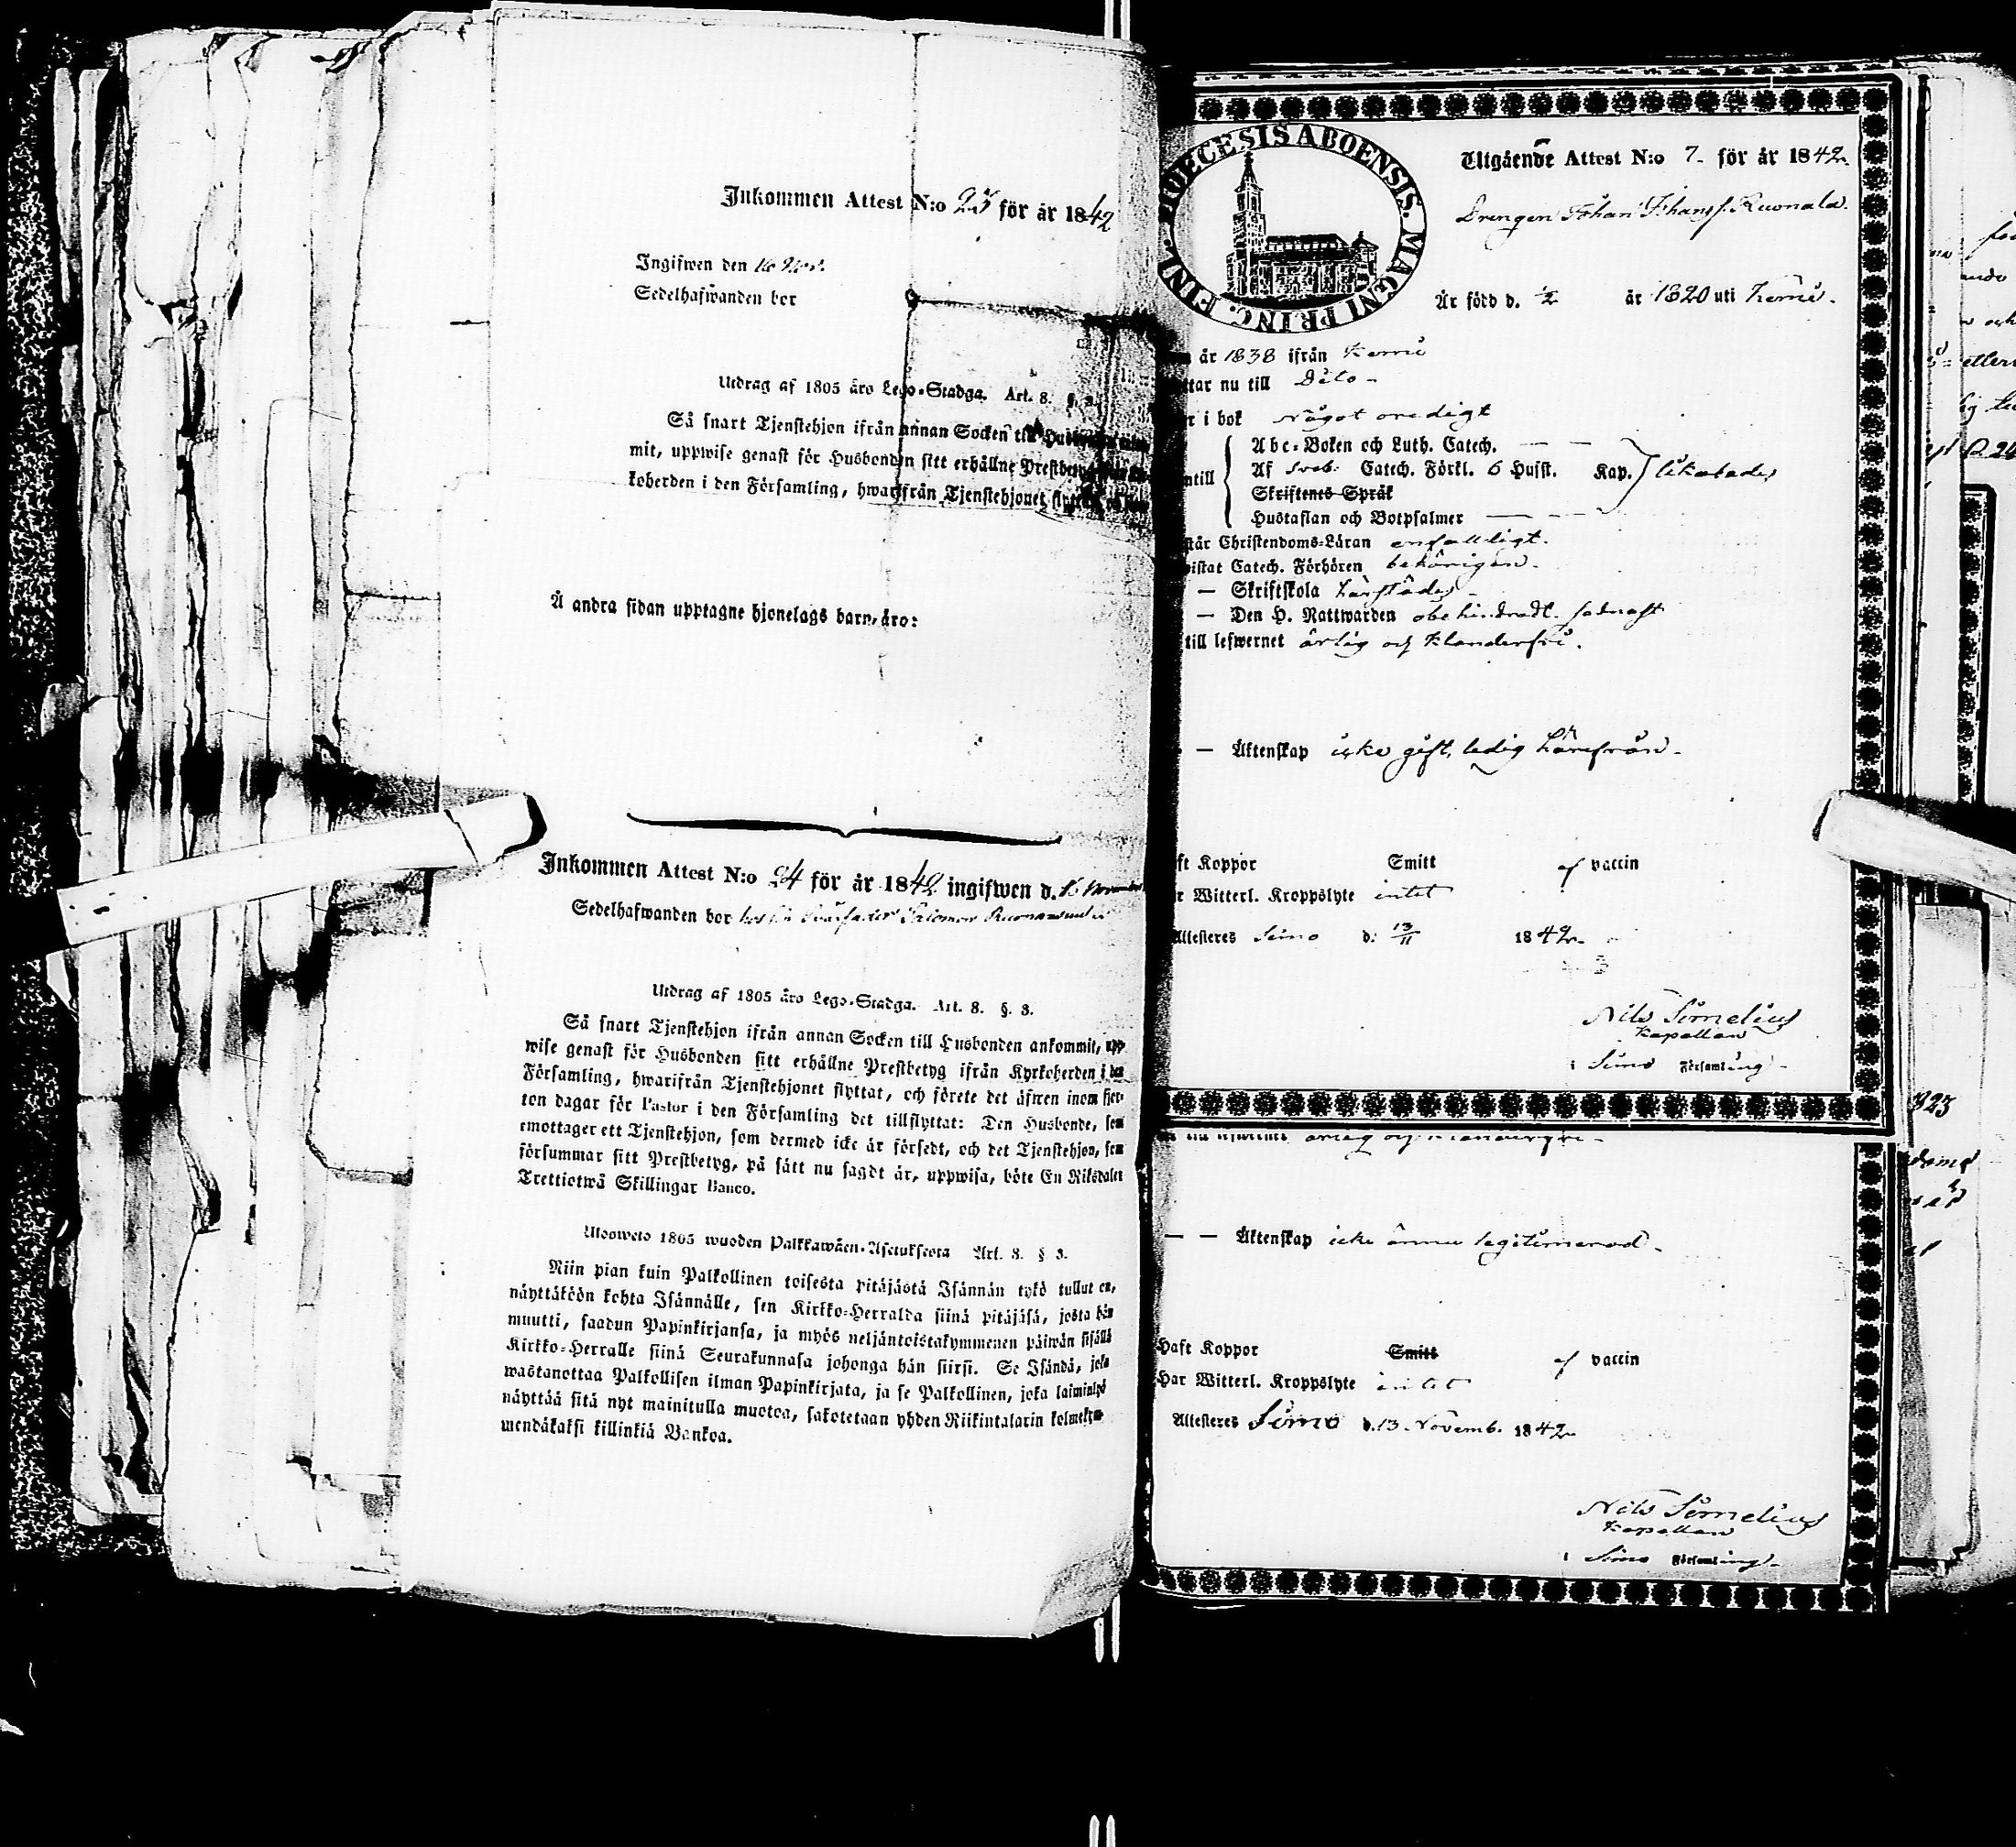 Inkommen Attest N:o 25 för år 1842
Ingifwen den 16 Nov.
Sedelhafwanden bor
Utdrag af 1805 åro Lego-Stadga. Art. 8. §. 3.
Så snart Tjenstehjon ifrån annan Socken till
mit, uppwise genast för Husbonden sitt erhållne Prestbetyg
koherden i den Församling, hwarifrån Tjenstehjonet
Å andra sidan upptagne hjonelags barn, äro:
Inkommen Attest N:o 24 för år 1842 ingifwen d. 16 November
Sedelhafwanden bor hos sin Swärfader Salomon
Utdrag af 1805 åro Lego-Stadga. Art. 8. §. 3.
Så snart Tjenstehjon ifrån annan Socken till Husbonden ankommit, upp-
wise genast för Husbonden sitt erhållne Prestbetyg ifrån Kyrkoherden i den
Församling, hwarifrån Tjenstehjonet flyttat, och förete det äfwen inom fjor-
ton dagar för Pastor i den Församling det tillflyttat: Den Husbonde, som
emottager ett Tjenstehjon, som dermed icke är försedt, och det Tjenstehjon, som
försummar sitt Prestbetyg, på sätt nu sagdt är, uppwisa, böte En Riksdaler
Trettiotwå Skillingar Banco.
Ulosweto 1805 wuoden Palkkawäen-Asetuksesta Art. 8. § 3.
Niin pian kuin Palkollinen toisesta pitäjästä Isännän tykö tullut on,
näyttäköön kohta Isännälle, sen Kirkko-Herralda siinä pitäjäsä, josta hän
muutti, saadun Papinkirjansa, ja myös neljäntoistakymmenen päiwän sisällä
Kirkko-Herralle siinä Seurakunnasa johonga hän siirsi. Se Isändä, joka
wastanottaa Palkollisen ilman Papinkirjata, ja se Palkollinen, joka laiminlyö
näyttää sitä nyt mainitulla muotoa, sakotetaan yhden Riikintalarin kolmekym-
mendäkaksi killinkiä Bankoa.
DIOECESIS ABOENSIS. MAGNI PRINC. FINL.
Utgående Attest N:o 7. för år 1842.
Drengen Johan Johanss. Ruonala.
Är född d. ½ år 1820 uti Kemi.
år 1838 ifrån Kemi
ttar nu till Dito -
r i bok Något oredigt
Abc-Boken och Luth. Catech. — —
ntill Af Sveb. Catech. Förkl. 6 Hufst. Kap. likaledes
Skriftenes Språk
Hustaflan och Botpsalmer — —
står Christendoms-Läran enfaldigt.
wistat Catech. Förhören behörigen.
— Skriftskola härstädes -
— Den H. Nattwarden obehindradt. sednast
till lefwernet ärlig och klanderfri.
— Äktenskap icke gift, ledig härifrån.
ft Koppor Smitt af vaccin
r Witterl. Kroppslyte intet
Attesteres Simo d: 13/11 1842.
Nils Simelius
Kapellan
i Simo Församling.
till lefwernet ärlig och klanderfri.
— — Äktenskap icke ännu legitimerad.
Haft Koppor Smitt af vaccin
Har Witterl. Kroppslyte intet
Attesteres Simo d. 13 Novemb. 1842
Nils Simelius
Kapellan
i Simo Församling.